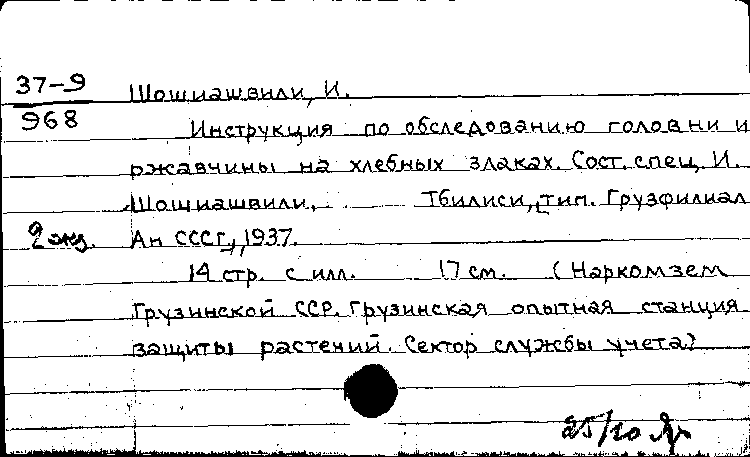 37-9
968
Шошиашвили, И.
Инструкция по обследованию головни и
ржавчины на хлебных злаках. Сост. спец. И.
Шошиашвили. Тбилиси, тип. Грузфилиал
2 экз. Ан СССР, 1937.
14 стр. с илл. 17 см. (Наркомзем
Грузинской ССР. Грузинская опытная станция
защиты растений. Сектор службы учета)
25/10